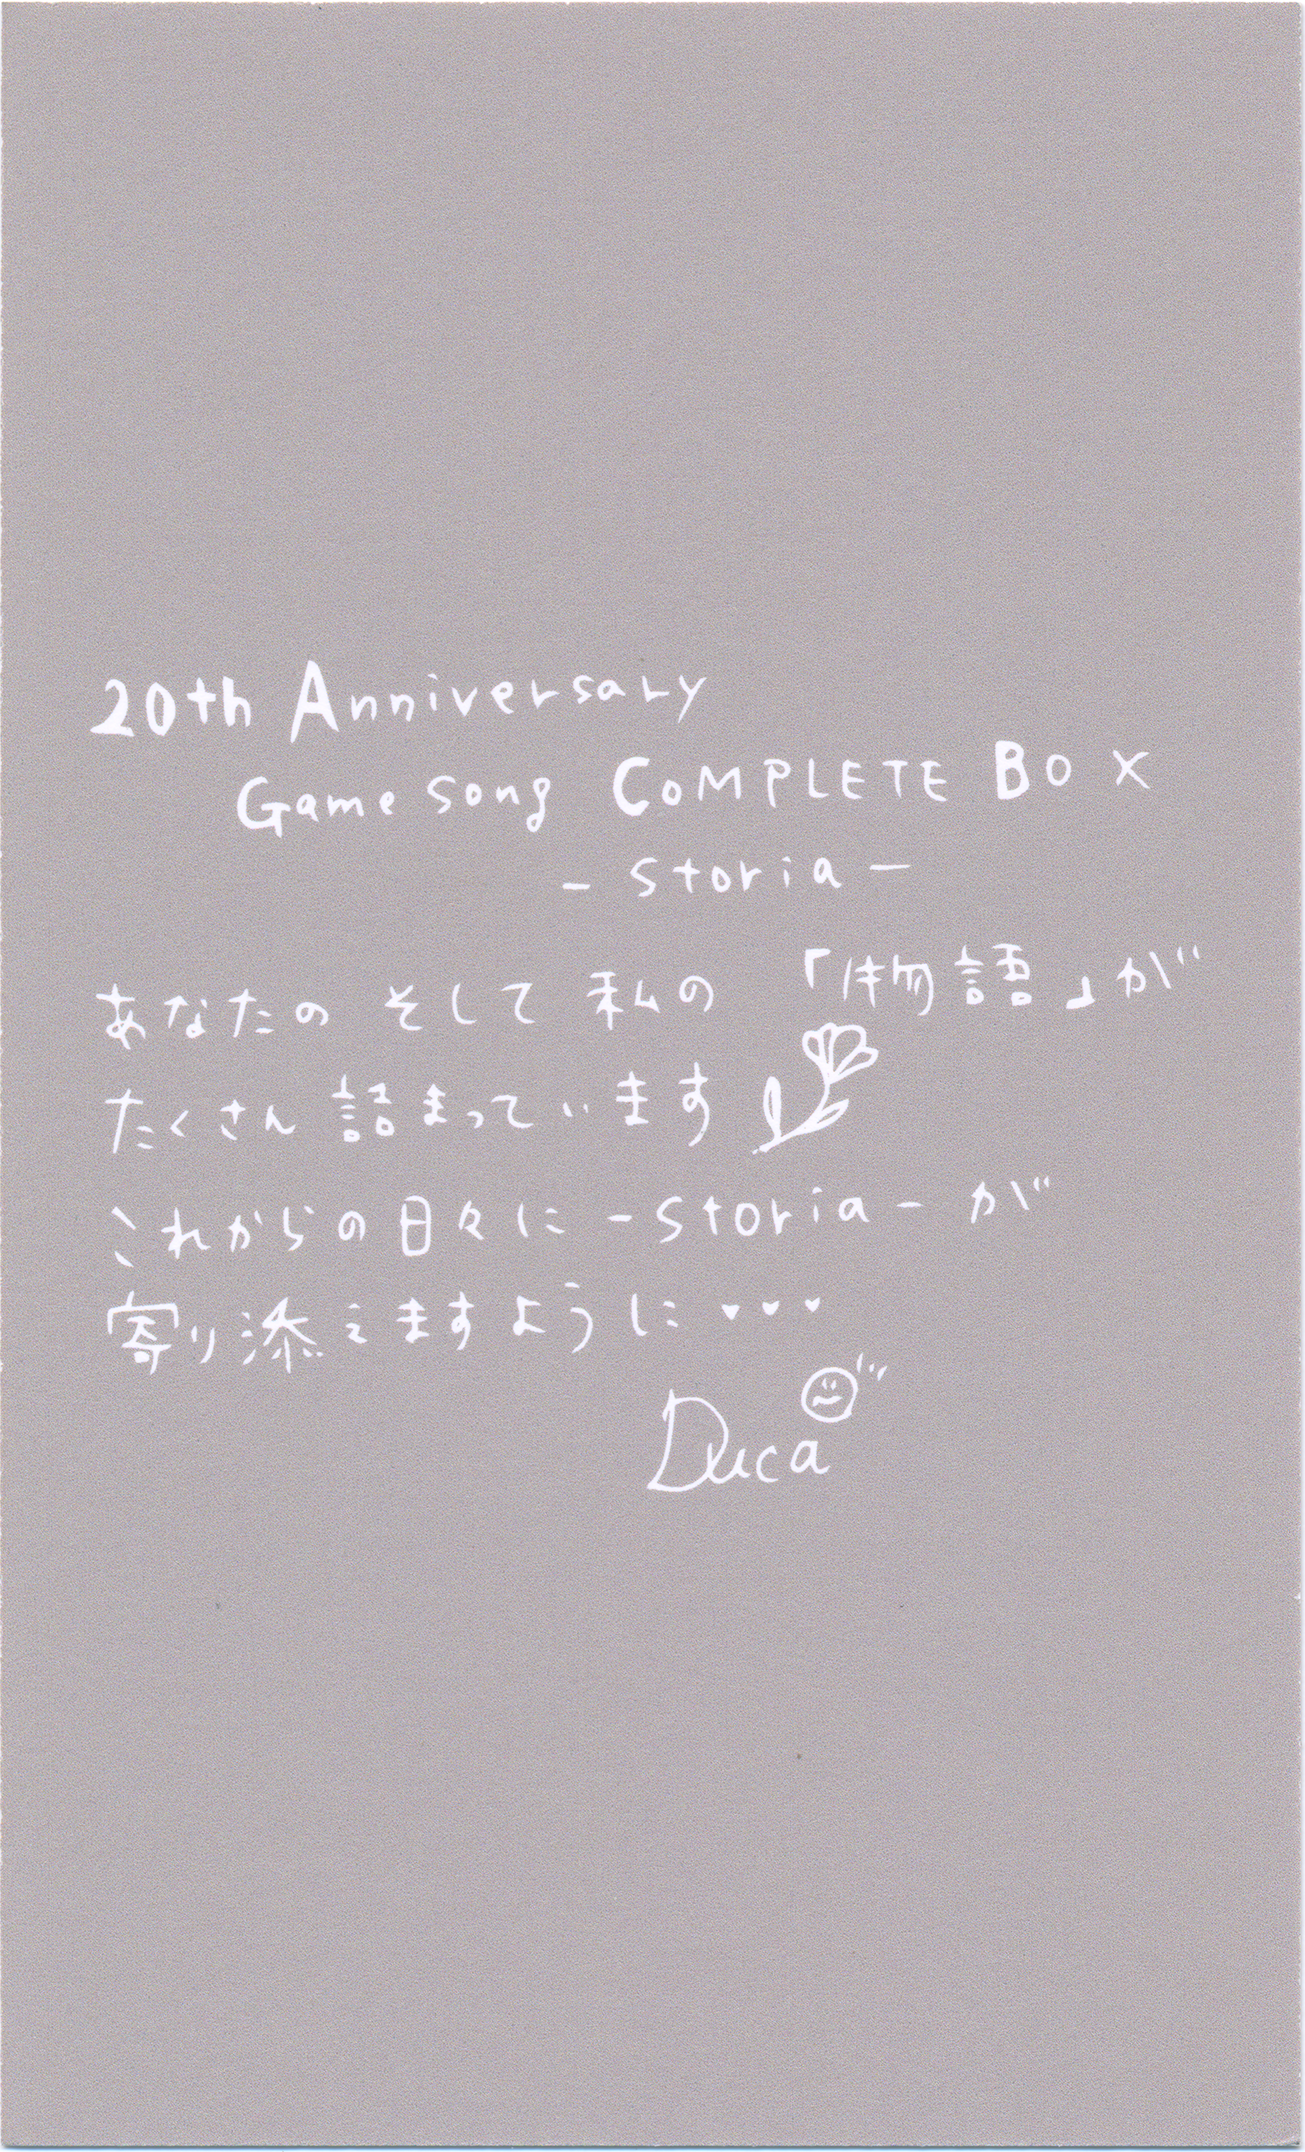 20th Anniversary
Game Song COMPLETE BOX
- Storia -
あなたの そして 私の 「物語」が
たくさん 詰まっています
これからの日々に -Storia- が
寄り添えますように・・・
Duca